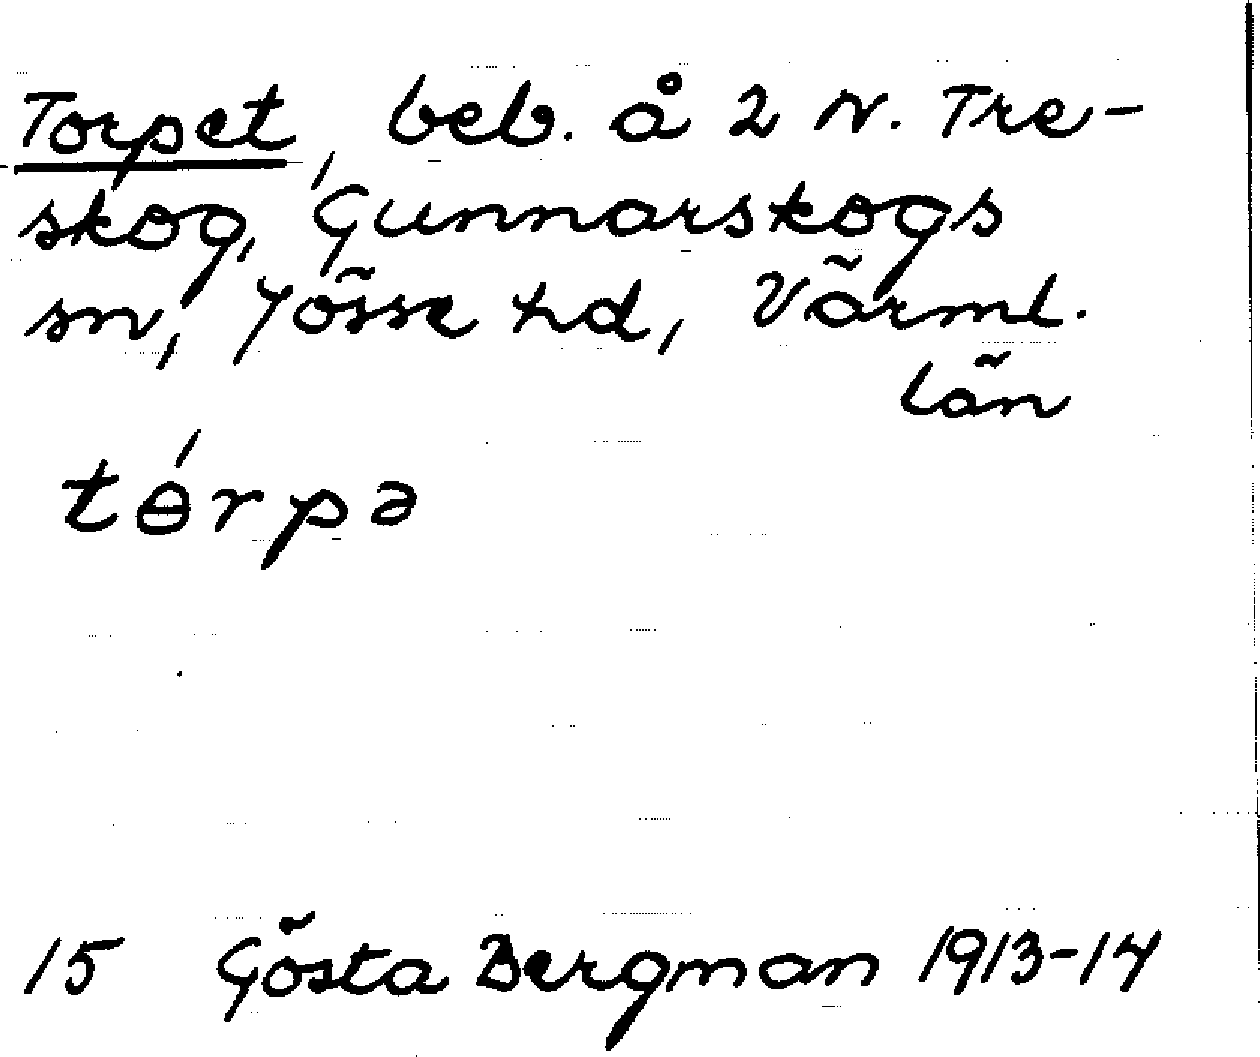 Torpet, beb. å 2 N. Tre-
skog, Gunnarskogs
sn, Jösse hd, Värml.
län
tɵ́rpə
15 Gösta Bergman 1913-14